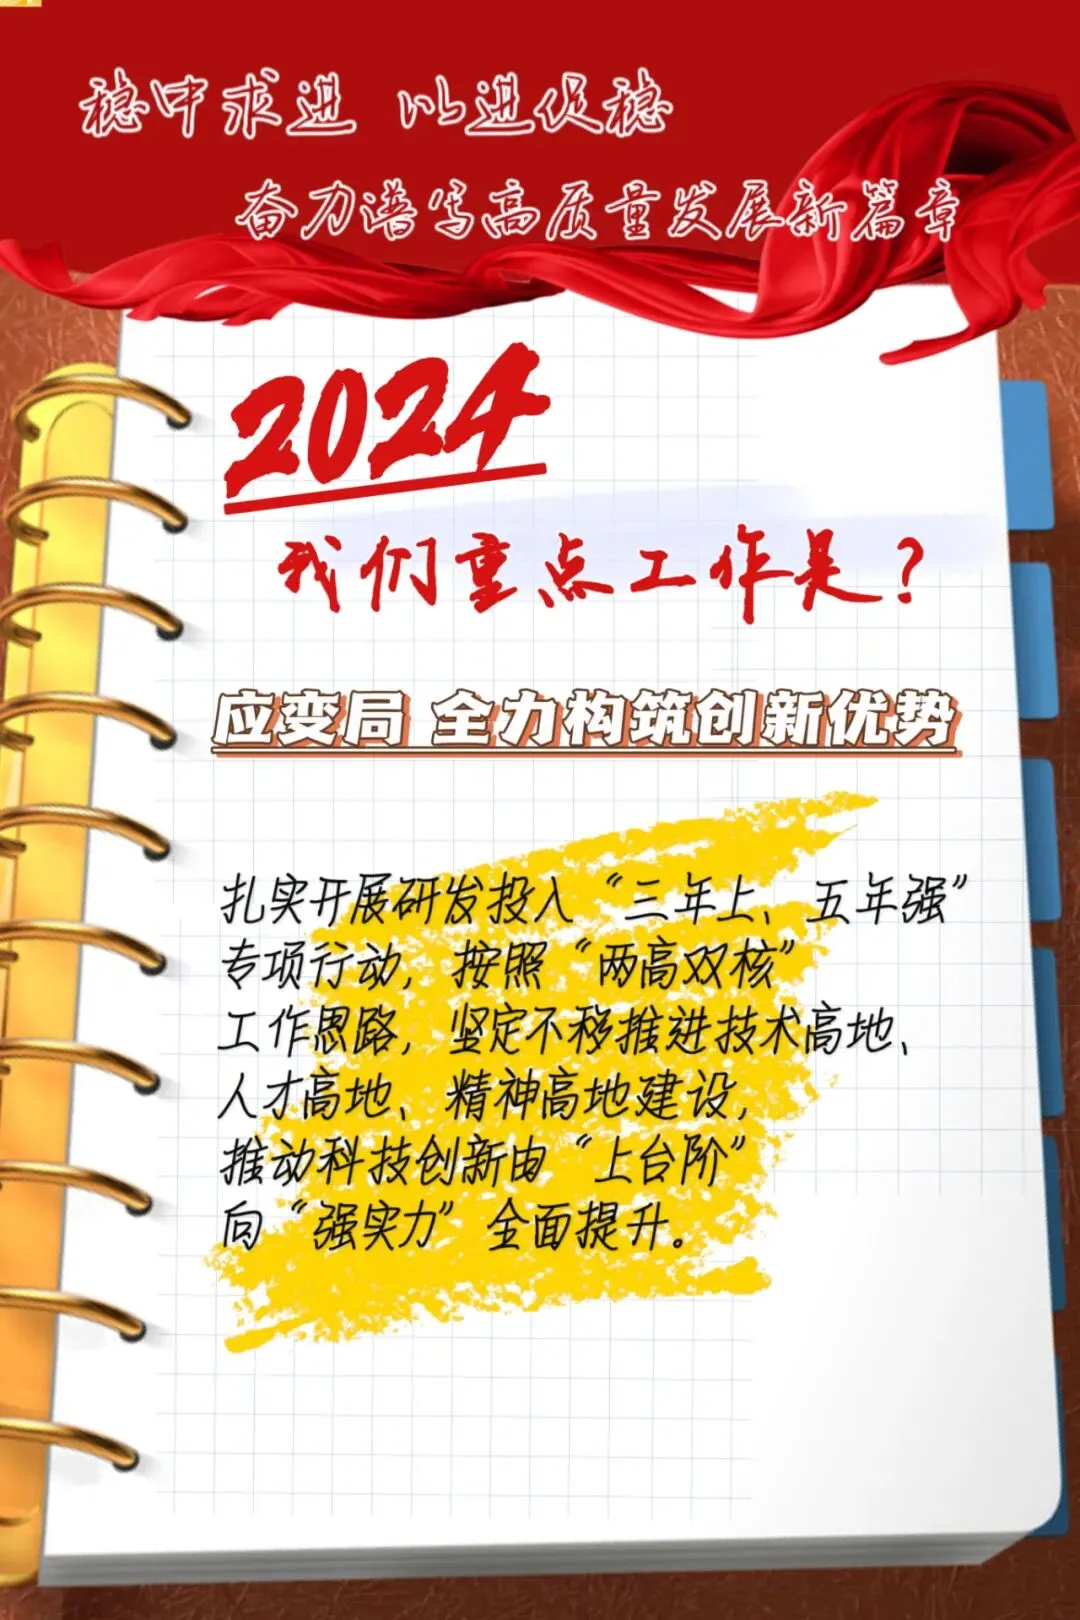 稳中求进 以进促稳
奋力谱写高质量发展新篇章
2024
我们重点工作是？
应变局 全力构筑创新优势
扎实开展研发投入“三年上、五年强”
专项行动，按照“两高双核”
工作思路，坚定不移推进技术高地、
人才高地、精神高地建设，
推动科技创新由“上台阶”
向“强实力”全面提升。